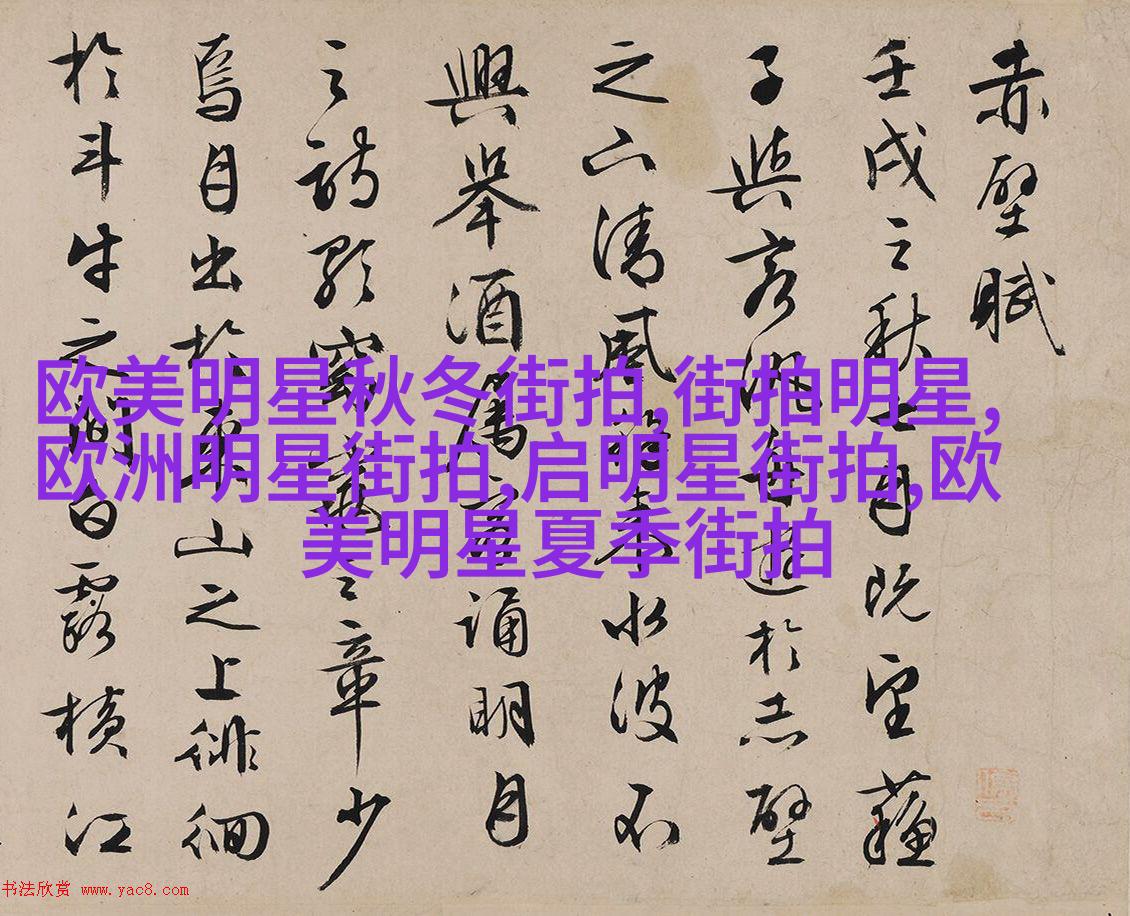 赤壁賦
壬戌之秋七月既望蘇
子與客泛舟遊於赤壁
之下清風徐來水波不
興舉酒屬客誦明月
之詩歌窈窕之章少
焉月出於東山之上徘徊
於斗牛之間白露橫江
欧美明星秋冬街拍,街拍明星,
欧洲明星街拍,启明星街拍,欧
美明星夏季街拍
书法欣赏 www.yac8.com